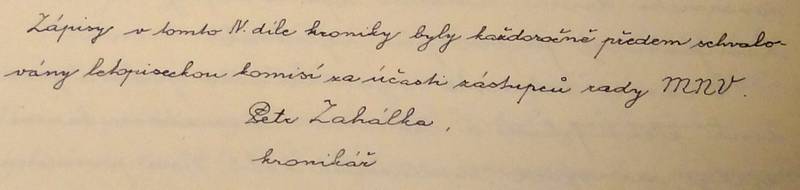 Zápisy v tomto IV. díle kroniky byly každoročně předem schvalo-
vány letopiseckou komisí za účasti zástupců rady MNV.
Petr Zahálka,
kronikář